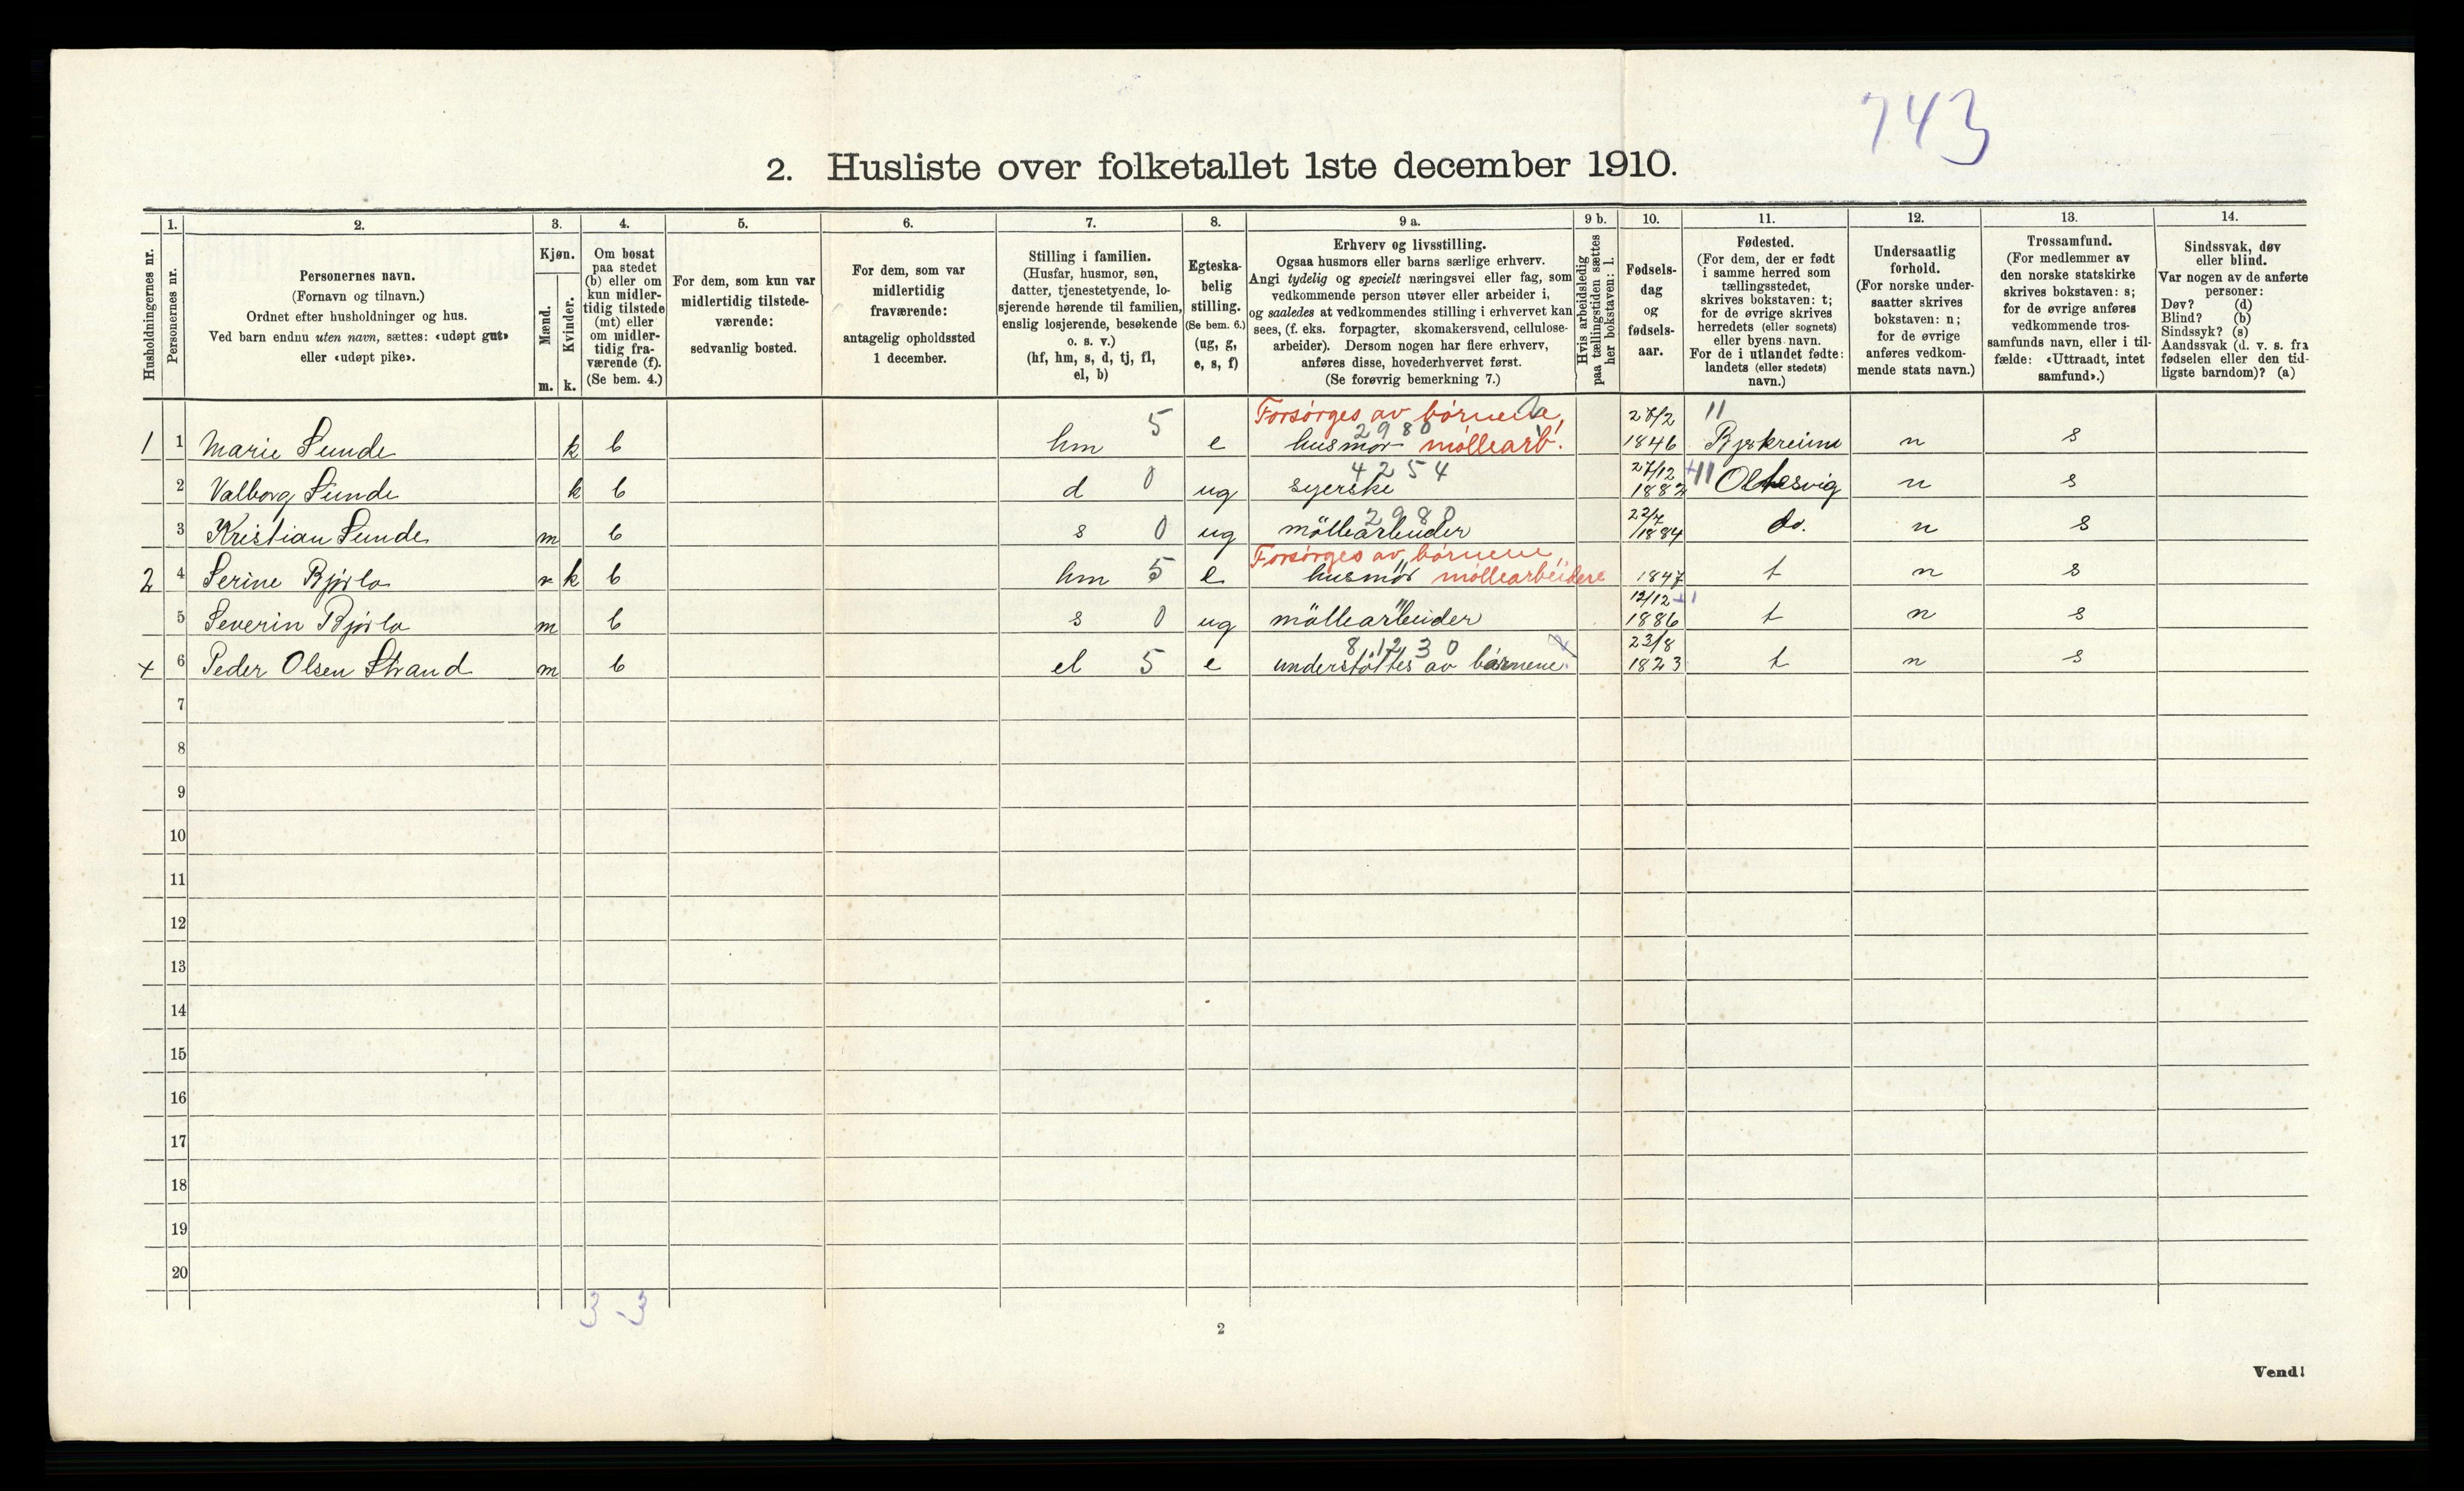 743
2. Husliste over folketallet 1ste december 1910.
Husholdningernes nr.
1.
Personernes nr.
2.
Personernes navn.
(Fornavn og tilnavn.)
Ordnet efter husholdninger og hus.
Ved barn endnu uten navn, sættes: «udøpt gut»
eller «udøpt pike».
3.
Kjøn.
Mænd.
Kvinder.
m. k.
4.
Om bosat
paa stedet
(b) eller om
kun midler-
tidig tilstede
(mt) eller
om midler-
tidig fra-
værende (f).
(Se bem. 4.)
5.
For dem, som kun var
midlertidig tilstede-
værende:
sedvanlig bosted.
6.
For dem, som var
midlertidig
fraværende:
antagelig opholdssted
1 december.
7.
Stilling i familien.
(Husfar, husmor, søn,
datter, tjenestetyende, lo-
sjerende hørende til familien,
enslig losjerende, besøkende
o. s. v.)
(hf, hm, s, d, tj, fl,
el, b)
8.
Egteska-
belig
stilling.
(Se bem. 6.)
(ug, g,
e, s, f)
9 a.
Erhverv og livsstilling.
Ogsaa husmors eller barns særlige erhverv.
Angi tydelig og specielt næringsvei eller fag, som
vedkommende person utøver eller arbeider i,
og saaledes at vedkommendes stilling i erhvervet kan
sees, (f. eks. forpagter, skomakersvend, cellulose-
arbeider). Dersom nogen har flere erhverv,
anføres disse, hovederhvervet først.
(Se forøvrig bemerkning 7.)
9 b.
Hvis arbeidsledig
paa tællingstiden sættes
her bokstaven: l.
10.
Fødsels-
dag
og
fødsels-
aar.
11.
Fødested.
(For dem, der er født
i samme herred som
tællingsstedet,
skrives bokstaven: t;
for de øvrige skrives
herredets (eller sognets)
eller byens navn.
For de i utlandet fødte:
landets (eller stedets)
navn.)
12.
Undersaatlig
forhold.
(For norske under-
saatter skrives
bokstaven: n;
for de øvrige
anføres vedkom-
mende stats navn.)
13.
Trossamfund.
(For medlemmer av
den norske statskirke
skrives bokstaven: s;
for de øvrige anføres
vedkommende tros-
samfunds navn, eller i til-
fælde: «Uttraadt, intet
samfund».)
14.
Sindssvak, døv
eller blind.
Var nogen av de anførte
personer:
Døv? (d)
Blind? (b)
Sindssyk? (s)
Aandssvak (d. v. s. fra
fødselen eller den tid-
ligste barndom)? (a)
Forsørges av børnene, 11
1 1 Marie Sunde k b hm 5 e husmor 2980 møllearb. 27/2 1846 Bjerkreim n s
2 Valborg Sunde k b d 0 ug syerske 4254 27/12 1882 +11 n s
3 Kristian Sunde m b s 0 ug möllearbeider 2980 22/7 1884 do. n s
Forsørges av børnene,
2 4 Serine Bjørlo k b hm 5 e husmor " møllearbeidere 1847 t n s
5 Severin Bjørlo m b s 0 ug möllearbeider " 12/12 1886 t n s
x 6 Peder Olsen Strand m b el 5 e understöttes av børnene 23/8 1823 t n s
7
8
9
10
11
12
13
14
15
16
17
18
19
20
3-3
2
Vend!